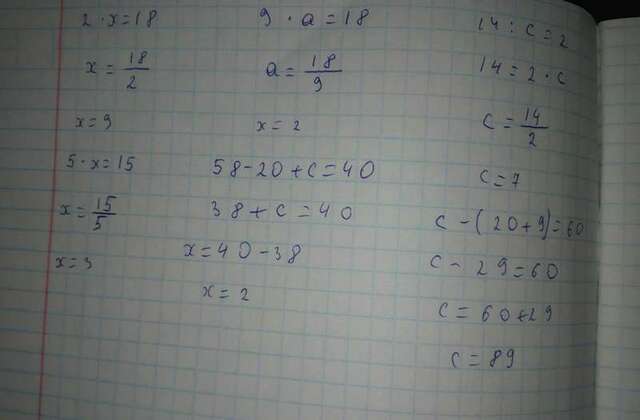 2 · x = 18
x = 18/2
x = 9
5 · x = 15
x = 15/5
x = 3
9 · a = 18
a = 18/9
x = 2
58 - 20 + c = 40
38 + c = 40
x = 40 - 38
x = 2
14 : c = 2
14 = 2 · c
c = 14/2
c = 7
c - (20 + 9) = 60
c - 29 = 60
c = 60 + 29
c = 89